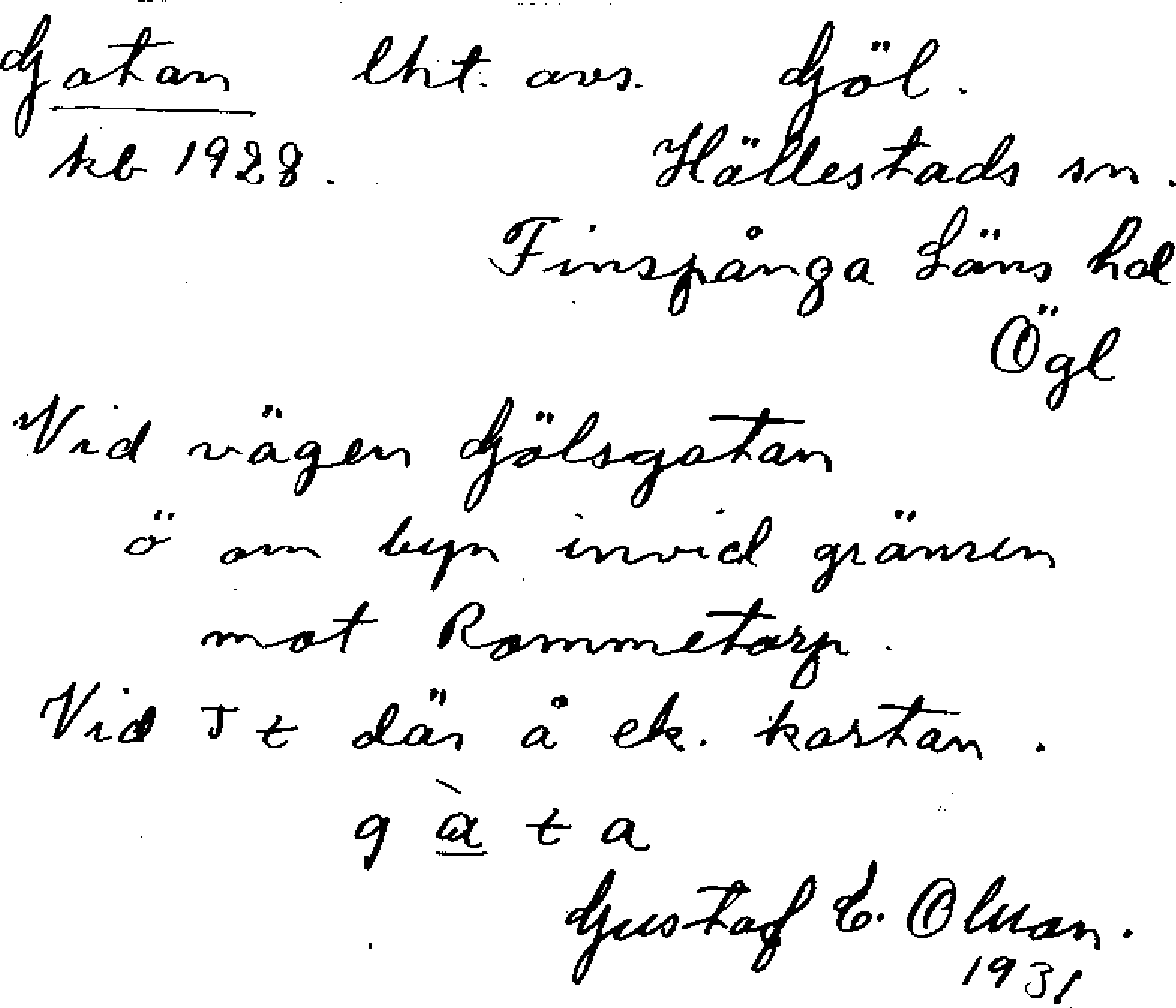 Gatan lht. avs. Gjöl.
kb 1928. Hällestads sn.
Finspånga Läns hd
Ögl
Vid vägen Gjölsgatan
ö om byn invid gränsen
mot Rommetorp.
Vid T t där å ek. kartan.
g à t a
Gustaf E. Olsson.
1931